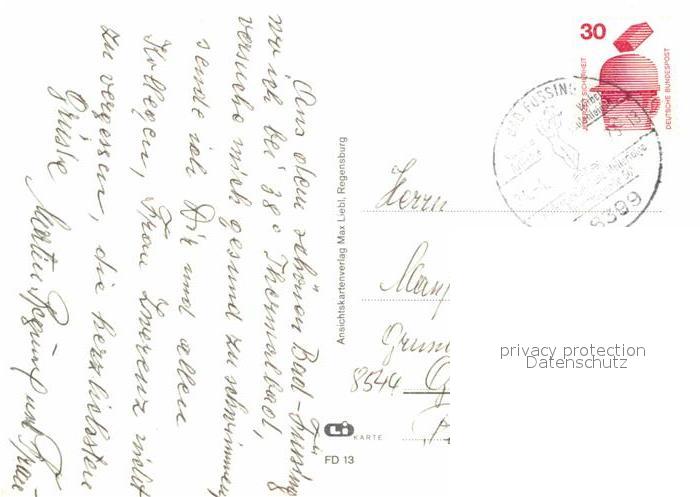 Aus dem schönen Bad-Füssing,
wo ich bei 38° Thermalbad,
versuche mich gesund zu schwimmen,
sende ich Dir und allen
Kollegen, Frau Lorenz nicht
zu vergessen, die herzlichsten
Grüsse Martin und Frau
Ansichtskartenverlag Max Liebl, Regensburg
Li KARTE
FD 13
30
DEUTSCHE BUNDESPOST
BAD FÜSSING
8399
Herrn
8544
privacy protection
Datenschutz